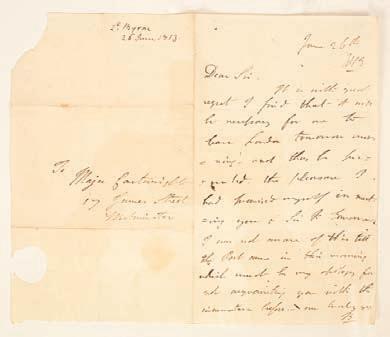 Ld Byron
26 June 1813
To
Major Cartwright
17 James Street
Westminster
June 26th
1813
Dear Sir.
It is with great
regret I find that it will
be necessary for me to
leave London tomorrow
& thus be
the pleasure I
had promised myself in meet-
ing you & Sir
I was not aware of this till
the Post came in this morning
which must be my apology for
not acquainting you with the
circumstance before
B